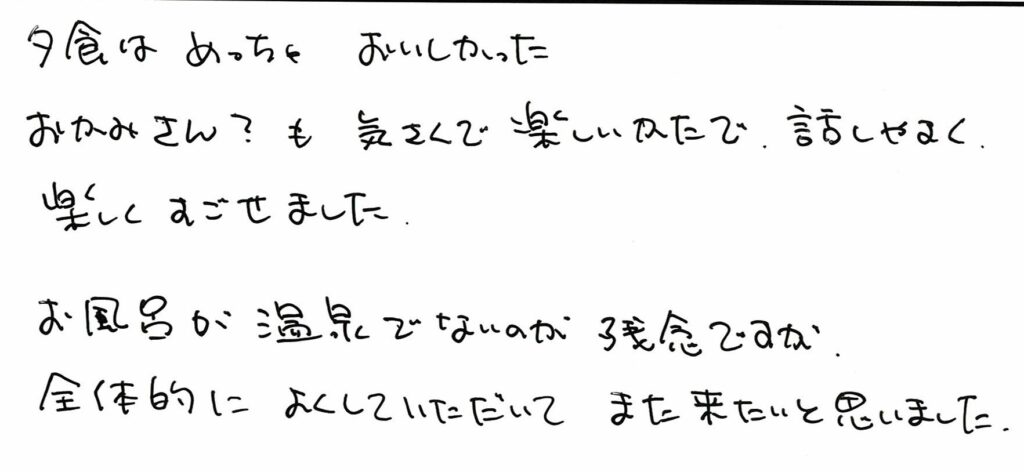 夕食は めっちゃ おいしかった
おかみさん?も 気さくで楽しいかたで.話しやすく.
楽しくすごせました.
お風呂が温泉でないのが残念ですが.
全体的に よくしていただいて また来たいと思いました.